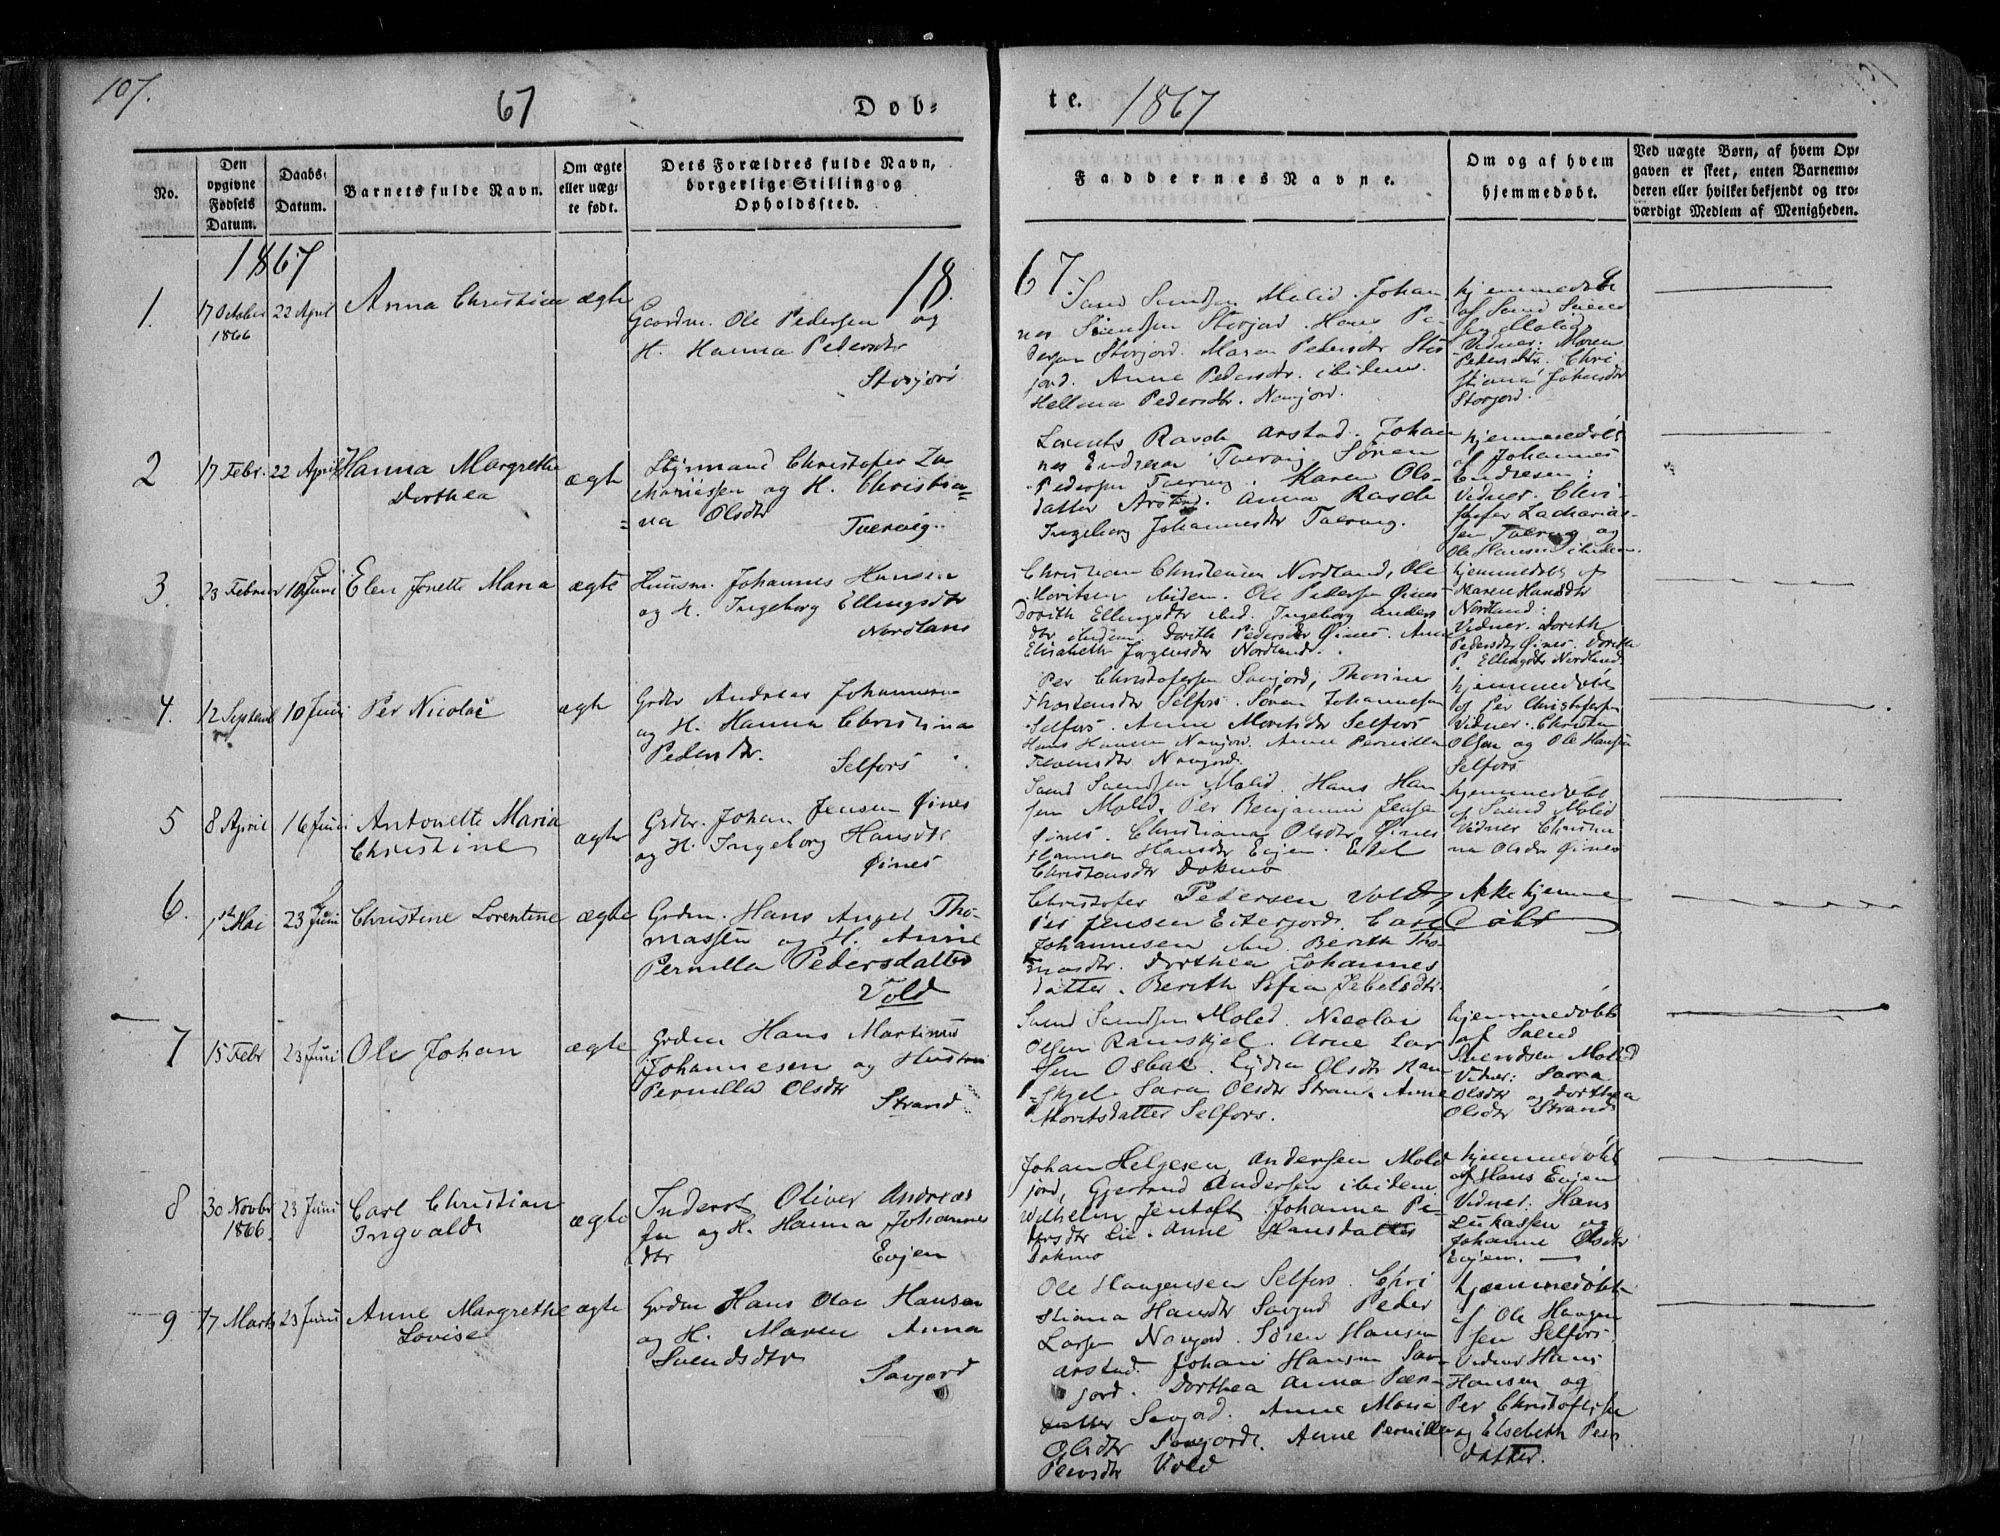 107.
67
Døb-
te.
1867
No.
Den
opgivne
Fødsels
Datum.
Daabs-
Datum.
Barnets fulde Navn.
Om ægte
eller uæg-
te født.
Dets Forældres fulde Navn,
borgerlige Stilling og
Opholdssted.
Faddernes Navne.
Om og af hvem
hjemmedøbt.
Ved uægte Børn, af hvem Op-
gaven er skeet, enten Barnemo-
deren eller hvilket bekjendt og tro-
værdigt Medlem af Menigheden.
1867
18
67.
1.
17 October
1866
22 April
Anna Christine
ægte
Gaardm. Ole Pedersen og
H. Hanna Pedersdtr
Storjord
Svend Svendsen Molid. Johan
nes Svendsen Storjord. Hans Pe-
dersen Storjord. Maren Pedersdtr Stor
jord. Anne Pedersdtr. ibidem.
Hellena Pedersdtr. Navjord.
hjemmedøbt
af Svend Svend
sen Molid
Vidner: Maren
Pedersdtr. Chri
stiana Johansdtr
Storjord.
2
17 Febr.
22 April
Hanna Margrethe
Dorthea
ægte
Styrmand Christofer Za
kariassen og H. Christia=
=na Olsdtr
Tvervig.
Lorents Rasch Arstad. Johan
nes Endresen Tvervig. Søren
Pedersen Tvervig. Maren Ols-
datter Arstad. Anna Rasch
Ingeborg Johannesdtr Tvervig.
hjemmedøbt
af Johannes
Endresen:
Vidner. Chri-
stofer Zacharias-
sen Tvervig og
Ole Hansen ibidem.
3.
23 Februar
10 Juni
Elen Jonette Maria
ægte
Huusm. Johannes Hansen
og H. Ingeborg Ellingsdtr
Nordland
Christian Christensen Nordland, Ole
Moritsen ibidem. Ole Pedersen Øines-
Dorith Ellingsdtr ibid. Ingeborg Anders
dtr ibidem. Dorith Pedersdtr Øines. Anne
Elisabeth Jørgensdtr Nordland.
hjemmedøbt af
Maren Hansdtr
Nordland:
Vidner. Dorith
Pedersdtr Øines. Dorith
P. Ellingsdtr Nordland
4.
12 September
10 Juni
Per Nicolai
ægte
Grdbr Andreas Johannesen
og H. Hanna Christina
Pedersdtr.
Selfors
Per Christofersen Savjord, Thorine
Thostensdtr Selfors. Søren Johannesen
Selfors. Anne Moritsdtr Selfors
Hans Hansen Navjord. Anne Pernilla
Navjord.
hjemmedøbt
af Per Christofersen
Vidner. Christen
Olsen og Ole Hansen
Selfors
5
8 April
16 Juni
Antonette Maria
Christine
ægte
Grdbr. Johan Jensen Øines
og H. Ingeborg Hansdtr
Øines
Svend Svendsen Molid. Hans Han
sen Molid. Per Benjamin Jensen
Øines. Christiana Olsdtr Øines
Hanna Hansdtr Evjen. Edel
Christensdtr Dokmo
hjemmedøbt
af Svend Molid
Vidner Christia
na Olsdtr Øines
6.
1ste Mai
23 Juni
Christine Lorentine
ægte
Grdm. Hans Angel Tho-
massen og H. Anne
Pernilla Pedersdatter
Vold
Christofer Pedersen Vold
Per Jensen Eiterjord. Carl
Johannesen ibid. Berith Tho-
masdtr. Dorthea Johannes
datter. Berith Sofia Pebelsdtr.
Ikke hjemme
døbt
7
15 Febr
23 Juni
Ole Johan
ægte
Grdm Hans Martinus
Johannesen og Hustru
Pernilla Olsdtr
Strand
Svend Svendsen Molid. Nicolai
Olsen Ramskjel. Arne Lar
sen Osbak. Lydia Olsdtr Ram
=skjel. Sara Olsdtr Strand. Anne
Moritsdatter Selfors.
hjemmedøbt
af Svend
Svendsen Molid
Vidner: Sarra
Olsdtr og Dorthea
Olsdtr Strand
8
30 Novbr
1866.
23 Juni
Carl Christian
Ingvald
ægte
Inderst Oliver Andreas
sen og H. Hanna Johannes
dtr
Evjen
Johan Helgesen Andersen Mold
jord, Gjertrud Andersen ibidem.
Vilhelm Jentoft Johanna Pe-
dersdtr Lie. Anne Hansdatter
Dokmo
hjemmedøbt
af Hans Evjen
Vidner: Hans
Lukassen og
Johanne Olsdtr
Evjen.
9
17 Marts
23 Juni
Anne Margrethe
Lovise
ægte
Grdm Hans Olai Hansen
og H. Maren Anna
Svendsdtr
Savjord
Ole Haagensen Selfors. Chri
stiana Hansdtr Savjord Peder
Larsen Navjord. Søren Hansen
Arstad. Johan Hansen Sav-
jord. Dorthea Anna Pær-
datter Savjord. Anne Maria
Olsdtr Savjord. Anne Pernilla
Persdtr Vold
hjemmedøbt
af Ole Haagen
sen Selfors.
Vidner Hans
Hansen og
Per Christofersen
og Elsebeth Pers
datter.